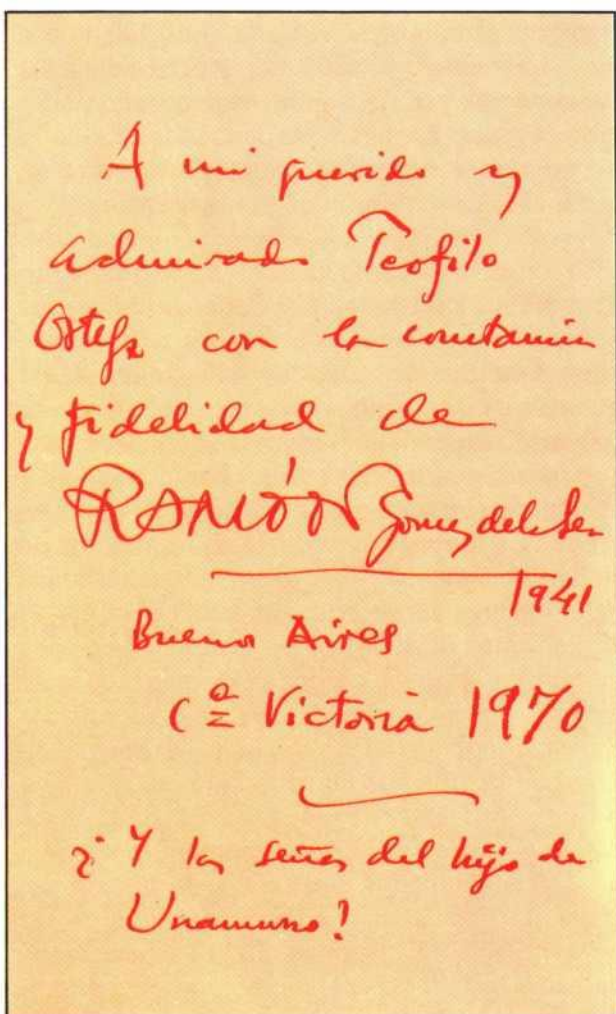 A mi querido y
admirado Teofilo
Ortega con la constancia
y fidelidad de
RAMÓN Gomez de la Serna
1941
Buenos Aires
Cª Victoria 1970
¿Y las señas del hijo de
Unamuno?